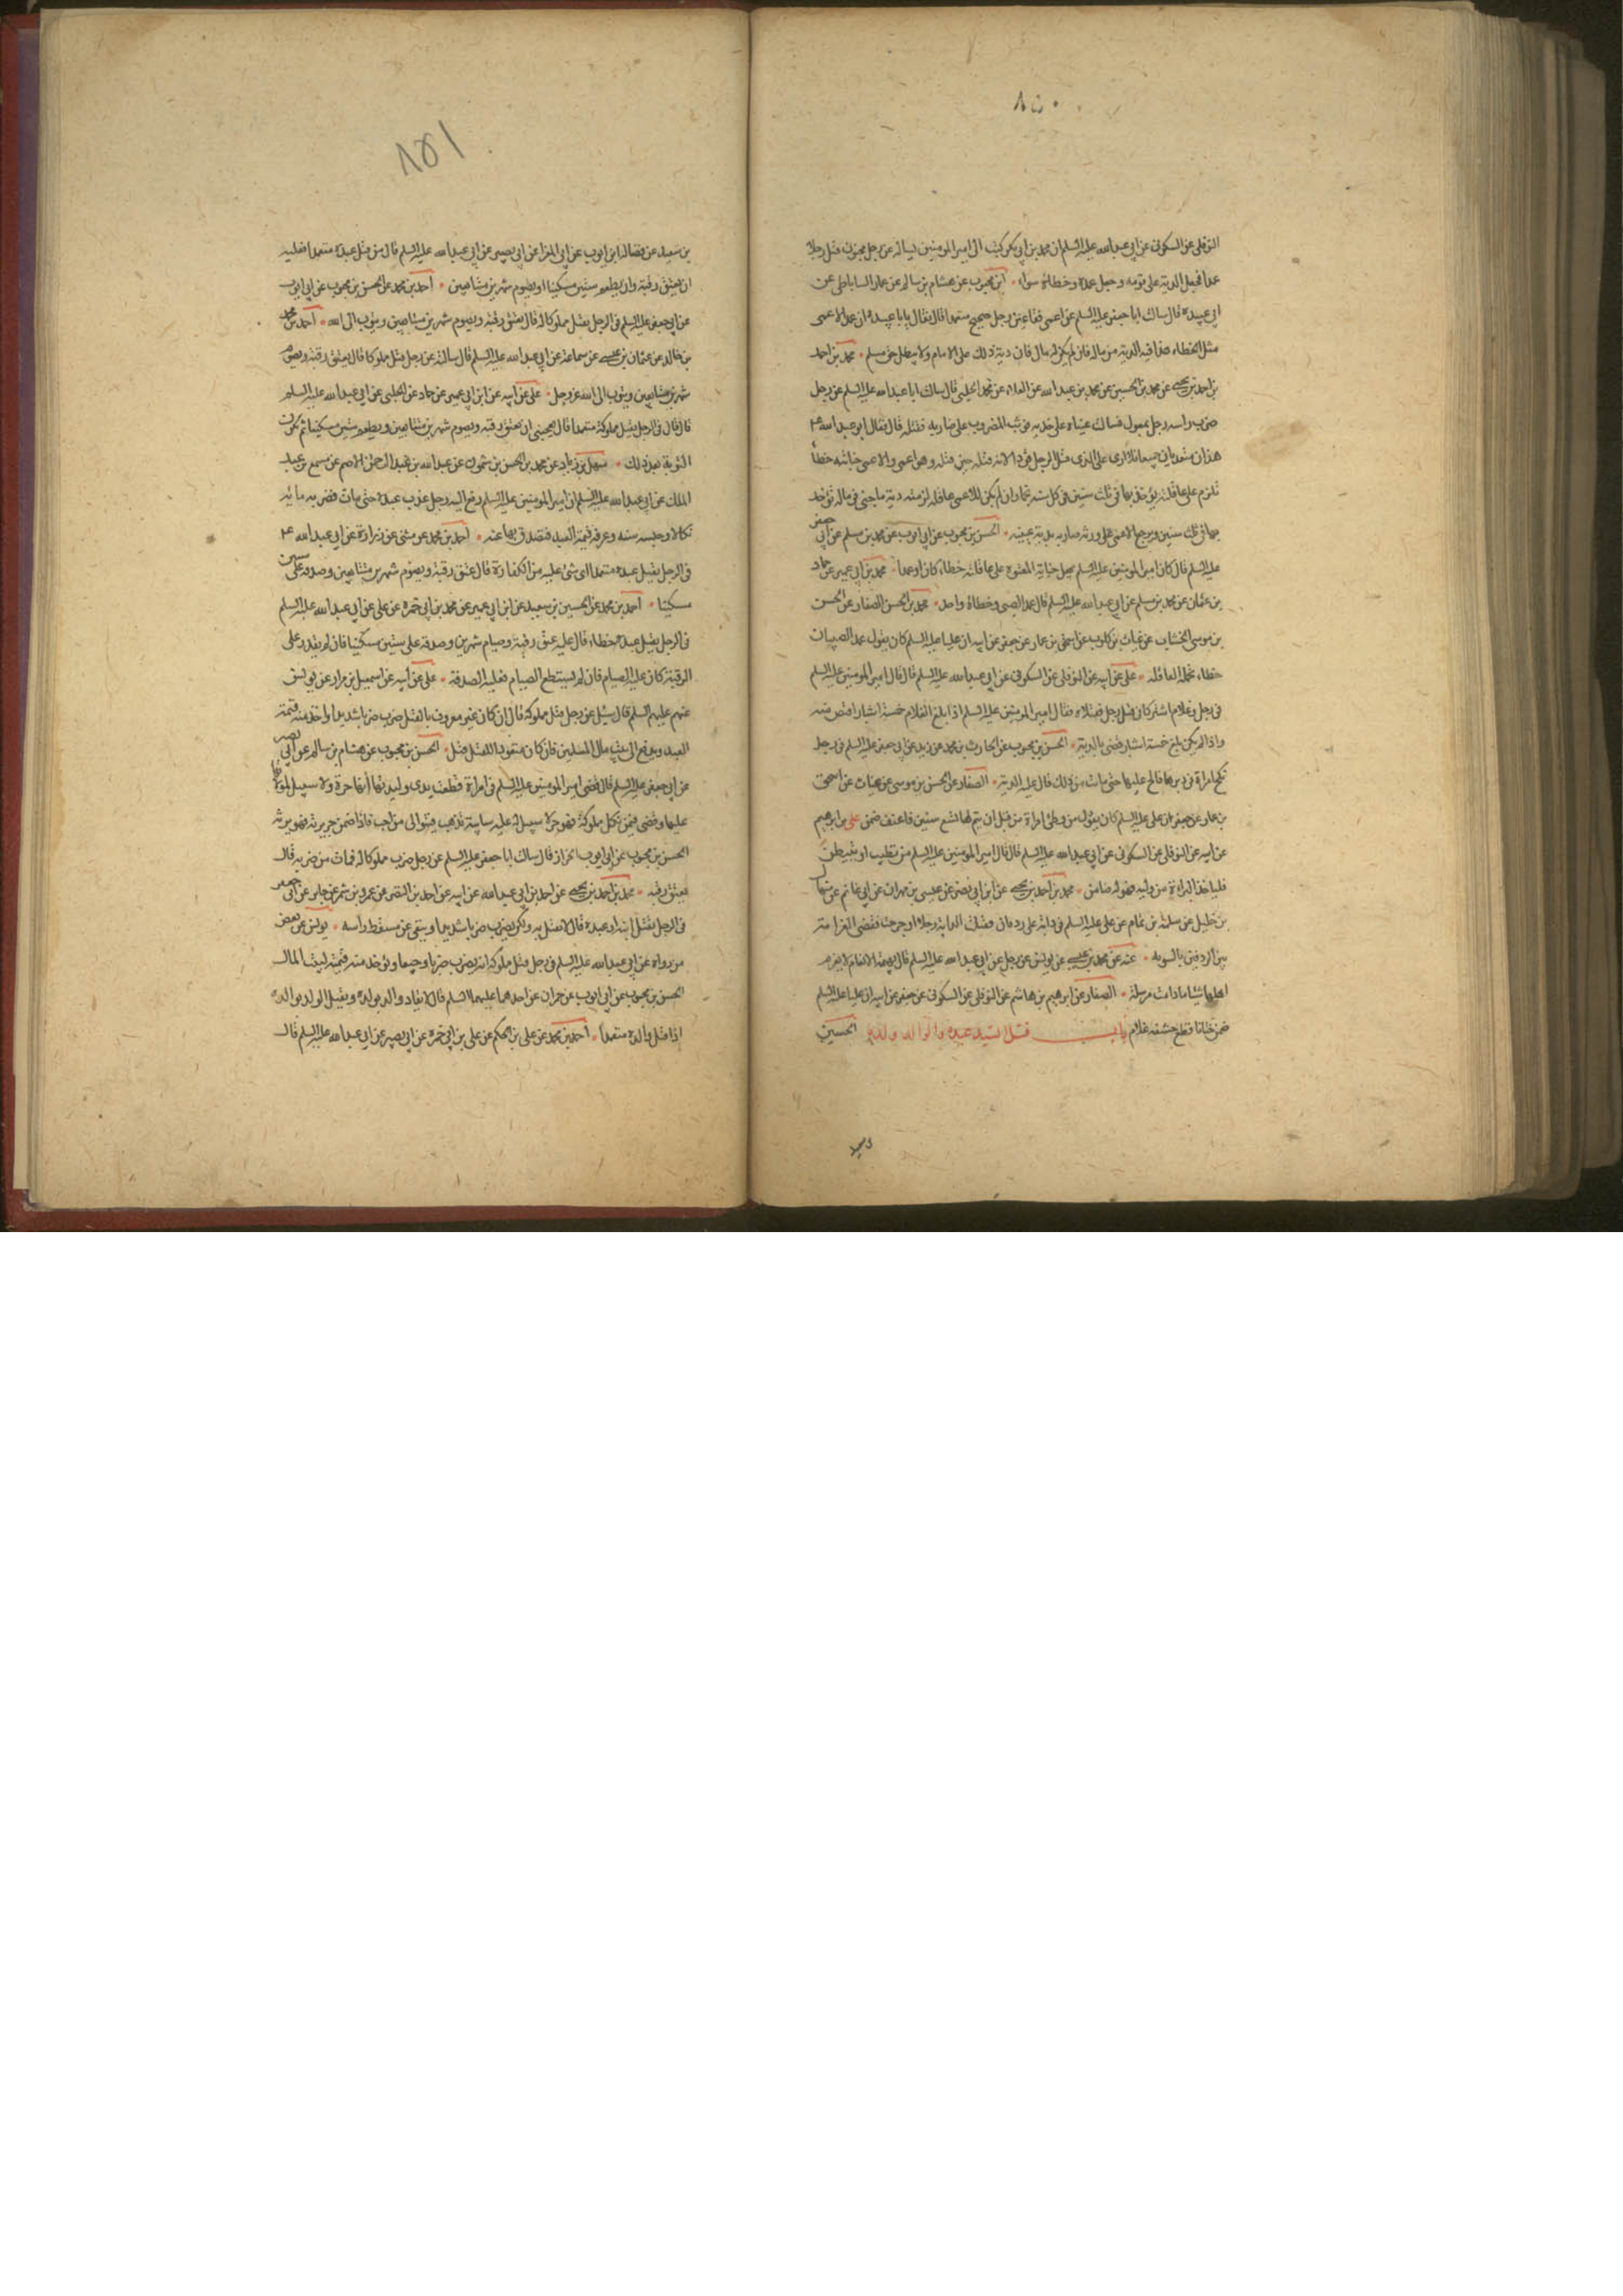 ٨٥٠
النوفلى عن السكونى عن ابى عبد الله عليه السلم ان محمد بن ابى بكر كتب الى امير المومنين يساله عن رجل مجنون قتل رجلا
عمدا فجعل الدية على قومه وجعل عمده وخطاؤه سواء ابن محبوب عن هشام بن سالم عن عمار الساباطى عن
ابى عبيدة قال سالت ابا جعفر عليه السلم عن اعمى فقا عين رجل صحيح متعمدا قال فقال يا با عبيدة ان عمد الاعمى
مثل الخطاء هذا فيه الدية من ماله فان لم يكن له مال فان دية ذلك على الامام ولا يبطل حق مسلم محمد بن احمد
بن احمد بن يحيى عن محمد بن الحسين عن محمد بن عبد الله عن العلاء عن محمد الحلبى قال سالت ابا عبد الله عليه السلم عن رجل
ضرب راس رجل بمعول فسالت عيناه على خديه فوثب المضروب على ضاربه فقتله قال فقال ابو عبد الله ع
هذان متعديان جميعا فلا ارى على الذى قتل الرجل قودا لانه قتله حين قتله وهو اعمى والاعمى جنايته خطأ
تلزم على عاقلته يؤخذون بها فى ثلث سنين فى كل سنة نجما وان لم يكن للاعمى عاقلة لزمته دية ما جنى فى ماله تؤخذ
بها فى ثلث سنين ويرجع الاعمى على ورثة ضاربه بدية عينيه الحسن بن محبوب عن ابى ايوب عن محمد بن مسلم عن ابى جعفر
عليه السلم قال كان امير المومنين عليه السلم يجعل جناية المعتوه على عاقلته خطاء كان او عمدا محمد بن ابى عمير عن حماد
بن عثمان عن محمد بن مسلم عن ابى عبد الله عليه السلم قال عمد الصبى وخطاؤه واحد محمد بن الحسن الصفار عن الحسن
بن موسى الخشاب عن غياث بن كلوب عن اسحق بن عمار عن جعفر عن ابيه ان عليا عليه السلم كان يقول عمد الصبيان
خطاء تحمله العاقلة على عن ابيه عن النوفلى عن السكونى عن ابى عبد الله عليه السلم قال قال امير المومنين عليه السلم
فى رجل وغلام اشتركا فى قتل رجل فقتلاه فقال امير المومنين عليه السلم اذا بلغ الغلام خمسة اشبار اقتص منه
واذا لم يكن بلغ خمسة اشبار قضى بالدية الحسن بن محبوب عن الحارث بن محمد عن زيد عن ابى جعفر عليه السلم فى رجل
نكح امراة فى دبرها فالح عليها حتى ماتت من ذلك قال عليه الدية الصفار عن الحسن بن موسى عن غياث عن اسحق
بن عمار عن جعفر ان على عليه السلم كان يقول من وطئ امراة من قبل ان يتم لها تسع سنين فاعنف ضمن على بن ابرهيم
عن ابيه عن النوفلى عن السكونى عن ابى عبد الله عليه السلم قال قال امير المومنين عليه السلم من تطبب او تبيطر
فلياخذ البراءة من وليه فهو له ضامن محمد بن احمد بن يحيى عن ابن ابى نصر عن عيسى بن مهران عن ابى غانم عن
بن خليل عن سلمة بن تمام عن على عليه السلم فى دابة على ردفان فقتلت الدابة رجلا او جرحت فقضى الغرامة
بين الردفين بالسوية عنه عن محمد بن عيسى عن يونس عن رجل عن ابى عبد الله عليه السلم قال بهيمة الانعام لا يغرم
اهلها شيئا ما دامت مرسلة الصفار عن ابرهيم بن هاشم عن النوفلى عن السكونى عن جعفر عن ابيه ان عليا عليه السلم
ضمن ختانا قطع حشفة غلام باب قتل السيد عبده والوالد ولده الحسين
٨٥١
بن سعيد عن فضالة ابن ايوب عن ابى المغرا عن ابى بصير عن ابى عبد الله عليه السلم قال من قتل عبده متعمدا فعليه
ان يعتق رقبة وان يطعم ستين مسكينا او يصوم شهرين متتابعين احمد بن محمد عن الحسن بن محبوب عن ابى ايوب
عن ابى جعفر عليه السلم فى الرجل يقتل مملوكا له قال يعتق رقبة ويصوم شهرين متتابعين ويتوب الى الله احمد بن محمد
بن خالد عن عثمان بن عيسى عن سماعة عن ابى عبد الله عليه السلم قال سالته عن رجل قتل مملوكا قال يعتق رقبة ويصوم
شهرين متتابعين ويتوب الى الله عز وجل على عن ابيه عن ابن ابى عمير عن حماد عن الحلبى عن ابى عبد الله عليه السلم
قال قال فى الرجل يقتل مملوكه متعمدا قال يعجبنى ان يعتق رقبة ويصوم شهرين متتابعين ويطعم ستين مسكينا ثم تكون
التوبة بعد ذلك سهل بن زياد عن محمد بن الحسن بن شمون عن عبد الله بن عبد الرحمن الاصم عن مسمع بن عبد
الملك عن ابى عبد الله عليه السلم ان امير المومنين عليه السلم رفع اليه رجل عذب عبده حتى مات فضربه مائة
نكالا وحبسه سنة وغرمه قيمة العبد فتصدق بها عنه احمد بن محمد عن مثنى عن زرارة عن ابى عبد الله ع
فى الرجل يقتل عبده متعمدا اى شئ عليه من الكفارة قال عتق رقبة ويصوم شهرين متتابعين وصدقه على ستين
مسكينا احمد بن محمد عن الحسين بن سعيد عن ابن ابى عمير عن محمد بن ابى حمزه عن على عن ابى عبد الله عليه السلم
فى الرجل يقتل عبده خطاء قال عليه عتق رقبة وصيام شهرين وصدقة على ستين مسكينا فان لم يقدر على
الرقبة كان عليه الصيام فان لم يستطع الصيام فعليه الصدقة على عن ابيه عن اسمعيل بن مرار عن يونس
عنهم عليهم السلم قال سئل عن رجل قتل مملوكه قال ان كان غير معروف بالقتل ضرب ضربا شديدا واخذ منه قيمة
العبد ويدفع الى بيت مال المسلمين فان كان متعودا للقتل قتل الحسن بن محبوب عن هشام بن سالم عن ابى بصير
عن ابى جعفر عليه السلم قال قضى امير المومنين عليه السلم فى امراة قطعت يدى وليدتها انها حرة ولا سبيل لمولاتها
عليها وقضى فيمن نكل مملوكه فهو حر لا سبيل له عليه سايبة يذهب فيتولى من احب فاذا ضمن جريرته فهو يرثه
الحسن بن محبوب عن ابى ايوب الخزاز قال سالت ابا جعفر عليه السلم عن رجل ضرب مملوكا له فمات من ضربه قال
يعتق رقبه محمد بن احمد بن يحيى عن احمد بن ابى عبد الله عن ابيه عن احمد بن النضر عن عمرو بن شمر عن جابر عن ابى جعفر
فى الرجل يقتل ابنه او عبده قال لا يقتل به ولكن يضرب ضربا شديدا وينفى عن مسقط راسه يونس عن بعض
من رواه عن ابى عبد الله عليه السلم فى رجل قتل مملوكه انه يضرب ضربا وجيعا ويؤخذ منه قيمته لبيت المال
الحسن بن محبوب عن ابى ايوب عن حمران عن احدهما عليهما السلم قال لا يقاد والد بولده ويقتل الولد بوالده
اذا قتل والده متعمدا احمد بن محمد عن على بن الحكم عن على بن ابى حمزه عن ابى بصير عن ابى عبد الله عليه السلم قال